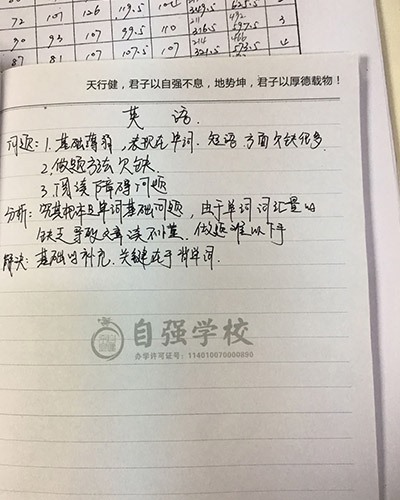 72 107 126 119.5 102 349.5 625.5 2
211 492
90 93 107 99.5 110 316.5 597.5 3
214 466
87 81 107 107.5 107 321.5 573.5 4
天行健，君子以自强不息，地势坤，君子以厚德载物！
英语.
问题：1. 基础薄弱，表现在单词、短语方面欠缺很多.
2. 做题方法欠缺.
3. 阅读障碍问题
分析：究其根本是单词基础问题，由于单词词汇量的
缺乏导致文章读不懂，做题难以下手
解决：基础的补充，关键在于背单词.
自强学校
办学许可证号：114010070000890